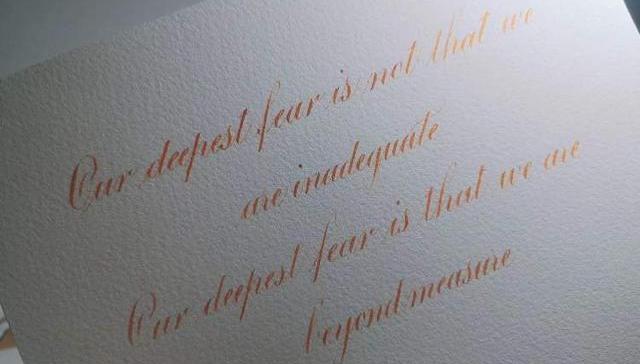 Our deepest fear is not that we
are inadequate
Our deepest fear is that we are
beyond measure